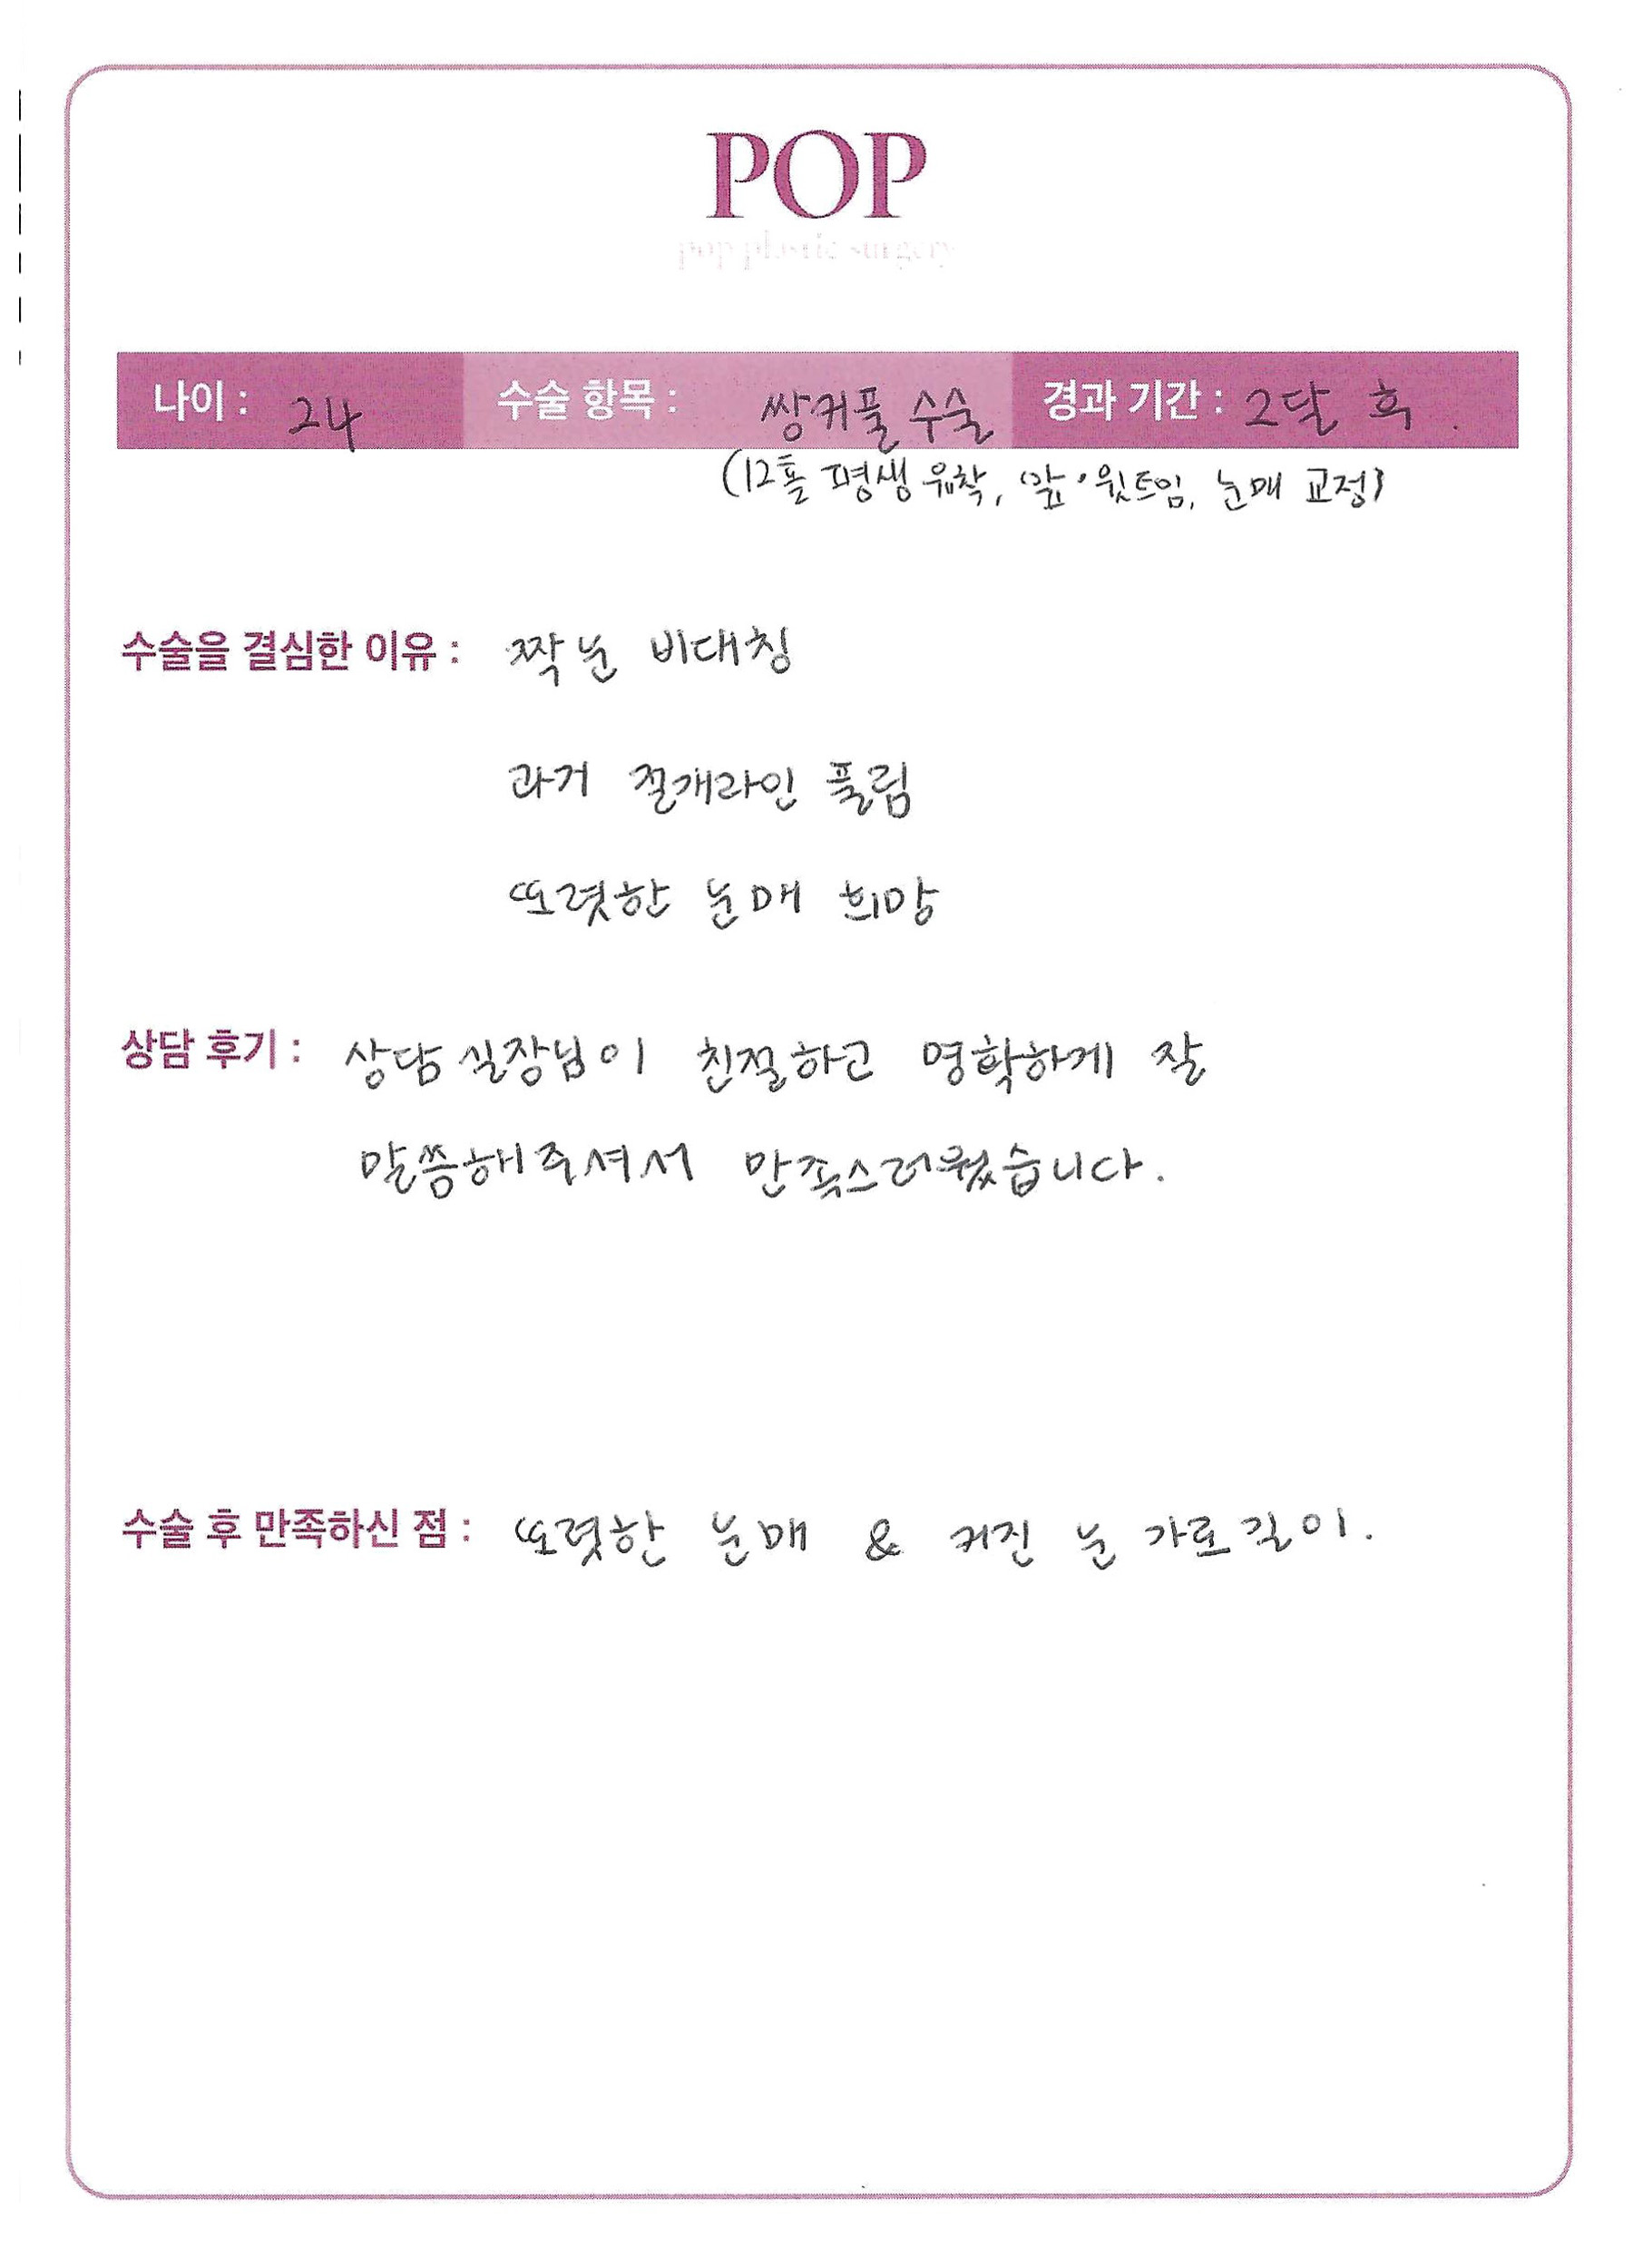 POP
pop plastic surgery
나이 : 24 수술 항목 : 쌍커풀 수술 경과 기간 : 2달 후.
(12홀 평생유착, 앞·윗트임, 눈매 교정)
수술을 결심한 이유 : 짝눈 비대칭
과거 절개라인 풀림
또렷한 눈매 희망
상담 후기 : 상담 실장님이 친절하고 명확하게 잘
말씀해주셔서 만족스러웠습니다.
수술 후 만족하신 점 : 또렷한 눈매 & 커진 눈 가로길이.